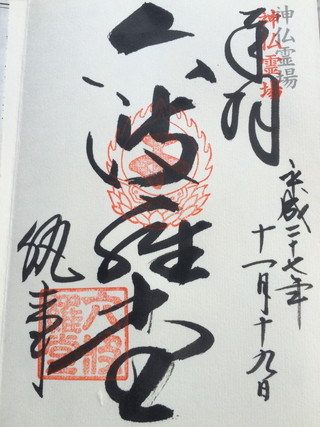 神仏霊場
神仏霊場
奉拝
平成二十七年
十一月十九日
六波羅堂
執事
六波
羅堂